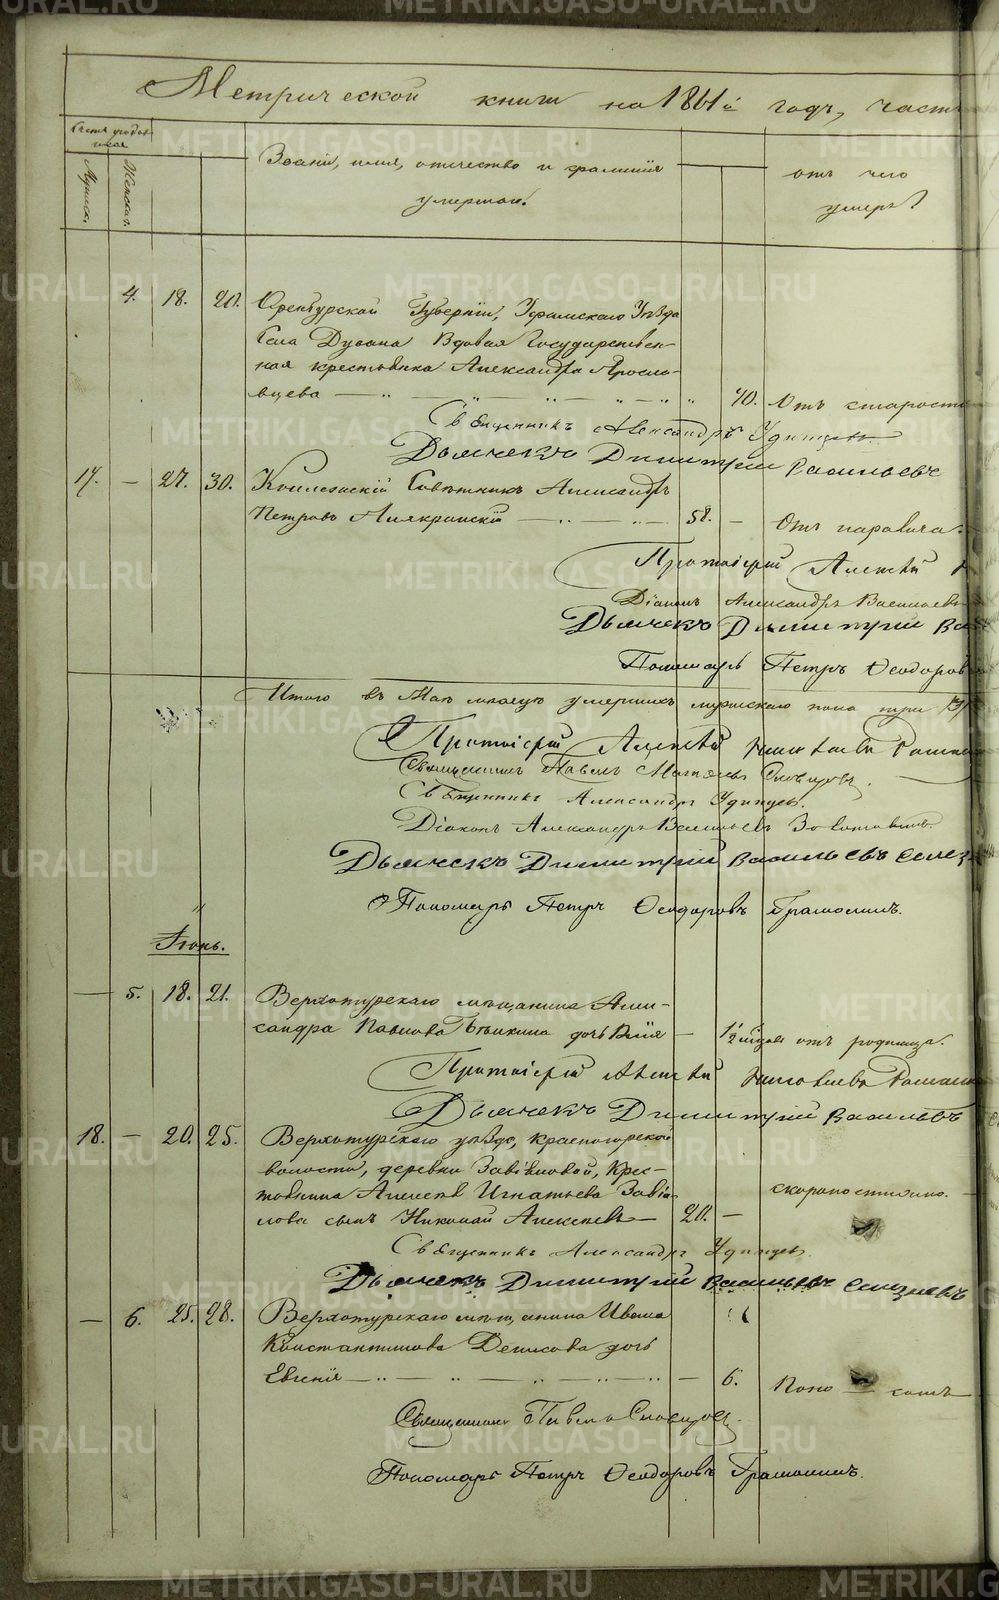 Метрической книги на 1861й годъ, часть
Счетъ умершихъ
Мужск.
Женскихъ
Званіе, имя, отчество и фамилія умершаго.
отъ чего умеръ?
4. 18. 20. Оренбурской Губерніи, Уфимскаго Уѣзда
Села Дувана Вдовая Государствен-
ная крестьянка Александра Яросла-
вцева 70. Отъ старости
Священникъ Александръ Удинцевъ.
Дьячекъ Димитрій Васильевъ
17. — 27. 30. Коллежскій Совѣтникъ Александръ
Петровъ 58. — Отъ паралича.
Протоіерей Алексѣй
Діаконъ Александръ Васильевъ
Дьячекъ Димитрій Ва
Пономарь Петръ Ѳеодоровъ
Итого въ Маѣ мѣсяцѣ умершихъ мужескаго пола
Протоіерей Алексѣй Николаевъ
Священникъ Павелъ
Священникъ Александръ Удинцевъ.
Діаконъ Александръ Васильевъ
Дьячекъ Димитрій Васильевъ Селез
Пономарь Петръ Ѳеодоровъ
Іюнь.
— 5. 18. 21. Верхотурскаго мѣщанина Алек-
сандра Павлова дочь — 1½ мѣсяц отъ родимца.
Протоіерей Алексѣй Николаевъ
Дьячекъ Димитрій Васильевъ
18. — 20. 25. Верхотурскаго уѣзда, Красногорской
волости, деревни Завьяловой, Крес-
тьянина Алексѣя Игнатьева Завья-
лова сынъ Николай Алексѣевъ — 20. — скоропостижно. —
Священникъ Александръ Удинцевъ.
Дьячекъ Димитрій Васильевъ Селезневъ
— 6. 25. 28. Верхотурскаго мѣщанина Ивана
Константинова Денисова дочь
Евгенія — 6.
Священникъ Павелъ
Пономарь Петръ Ѳеодоровъ
METRIKI.GASO-URAL.RU